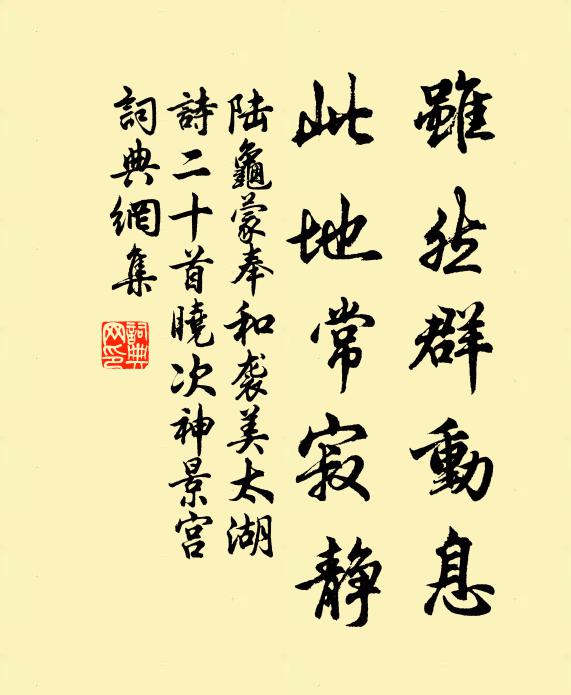 雖然群動息
此地常寂静
陆龜蒙奉和袭美太湖
詩二十首曉次神景宫
詞典網集
詞典
网印